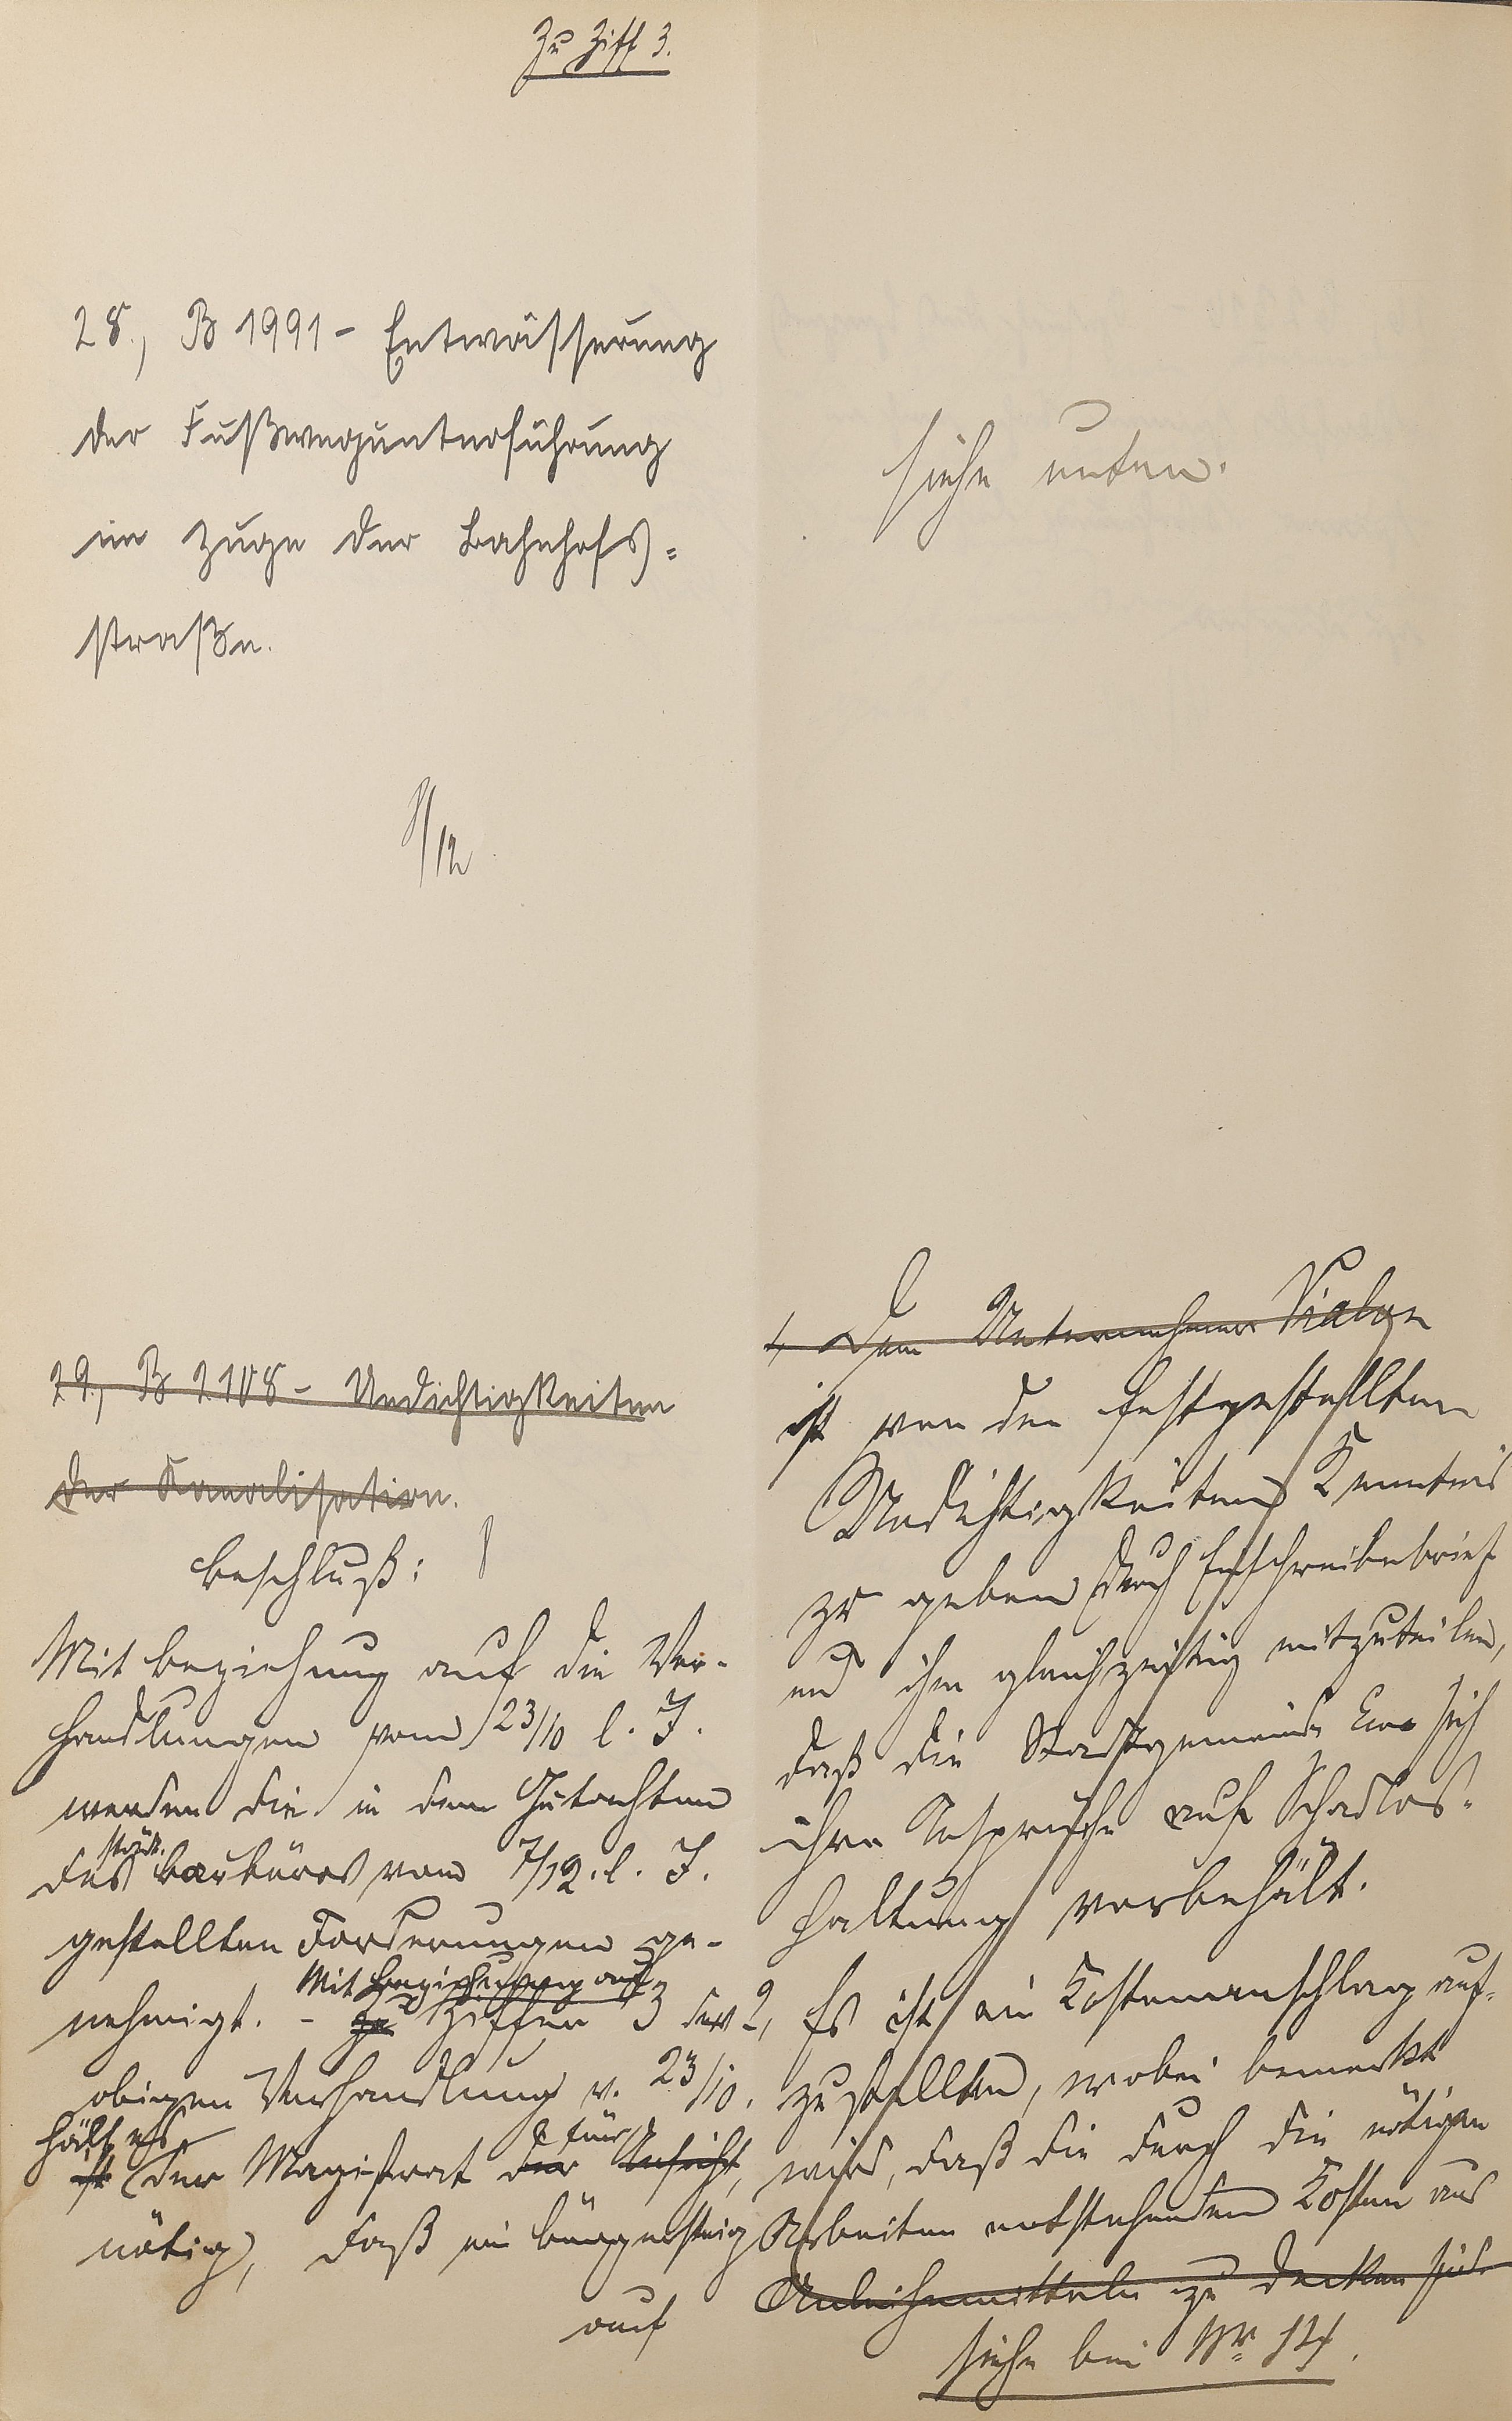 Zu Ziff 3.
28., B 1991 - Entwässerung
der Fußwegunterführung
im Zuge der Bahnhofs-
straße.
siehe unten.
8/12
29., B 2108 - Undichtigkeiten
der Kanalisation.
Beschluß:
Mit Beziehung auf die Ver-
handlungen vom 23/10 l. J.
werden die in dem Gutachten
des städt. Baubüros vom 7/12. l. J.
gestellten Forderungen ge-
nehmigt. - Mit Beziehung auf
Zu Ziffer 3 der
obigen Verhandlung v. 23/10.
hält es
ist der Magistrat der dafür Ansicht,
nötig, daß ein Bürgersteig
auf
1, Dem Unternehmer
ist von den festgestellten
Undichtigkeiten Kenntnis
zu geben durch Einschreibebrief
und ihm gleichzeitig mitzuteilen,
daß die Stadtgemeinde sich
ihre Ansprüche auf Schadlos-
haltung vorbehält.
2, Es ist ein Kostenanschlag auf-
zustellen, wobei bemerkt
wird, daß die durch die nötigen
Arbeiten entstehenden Kosten aus
Anleihemitteln zu decken sind
siehe bei Nr.